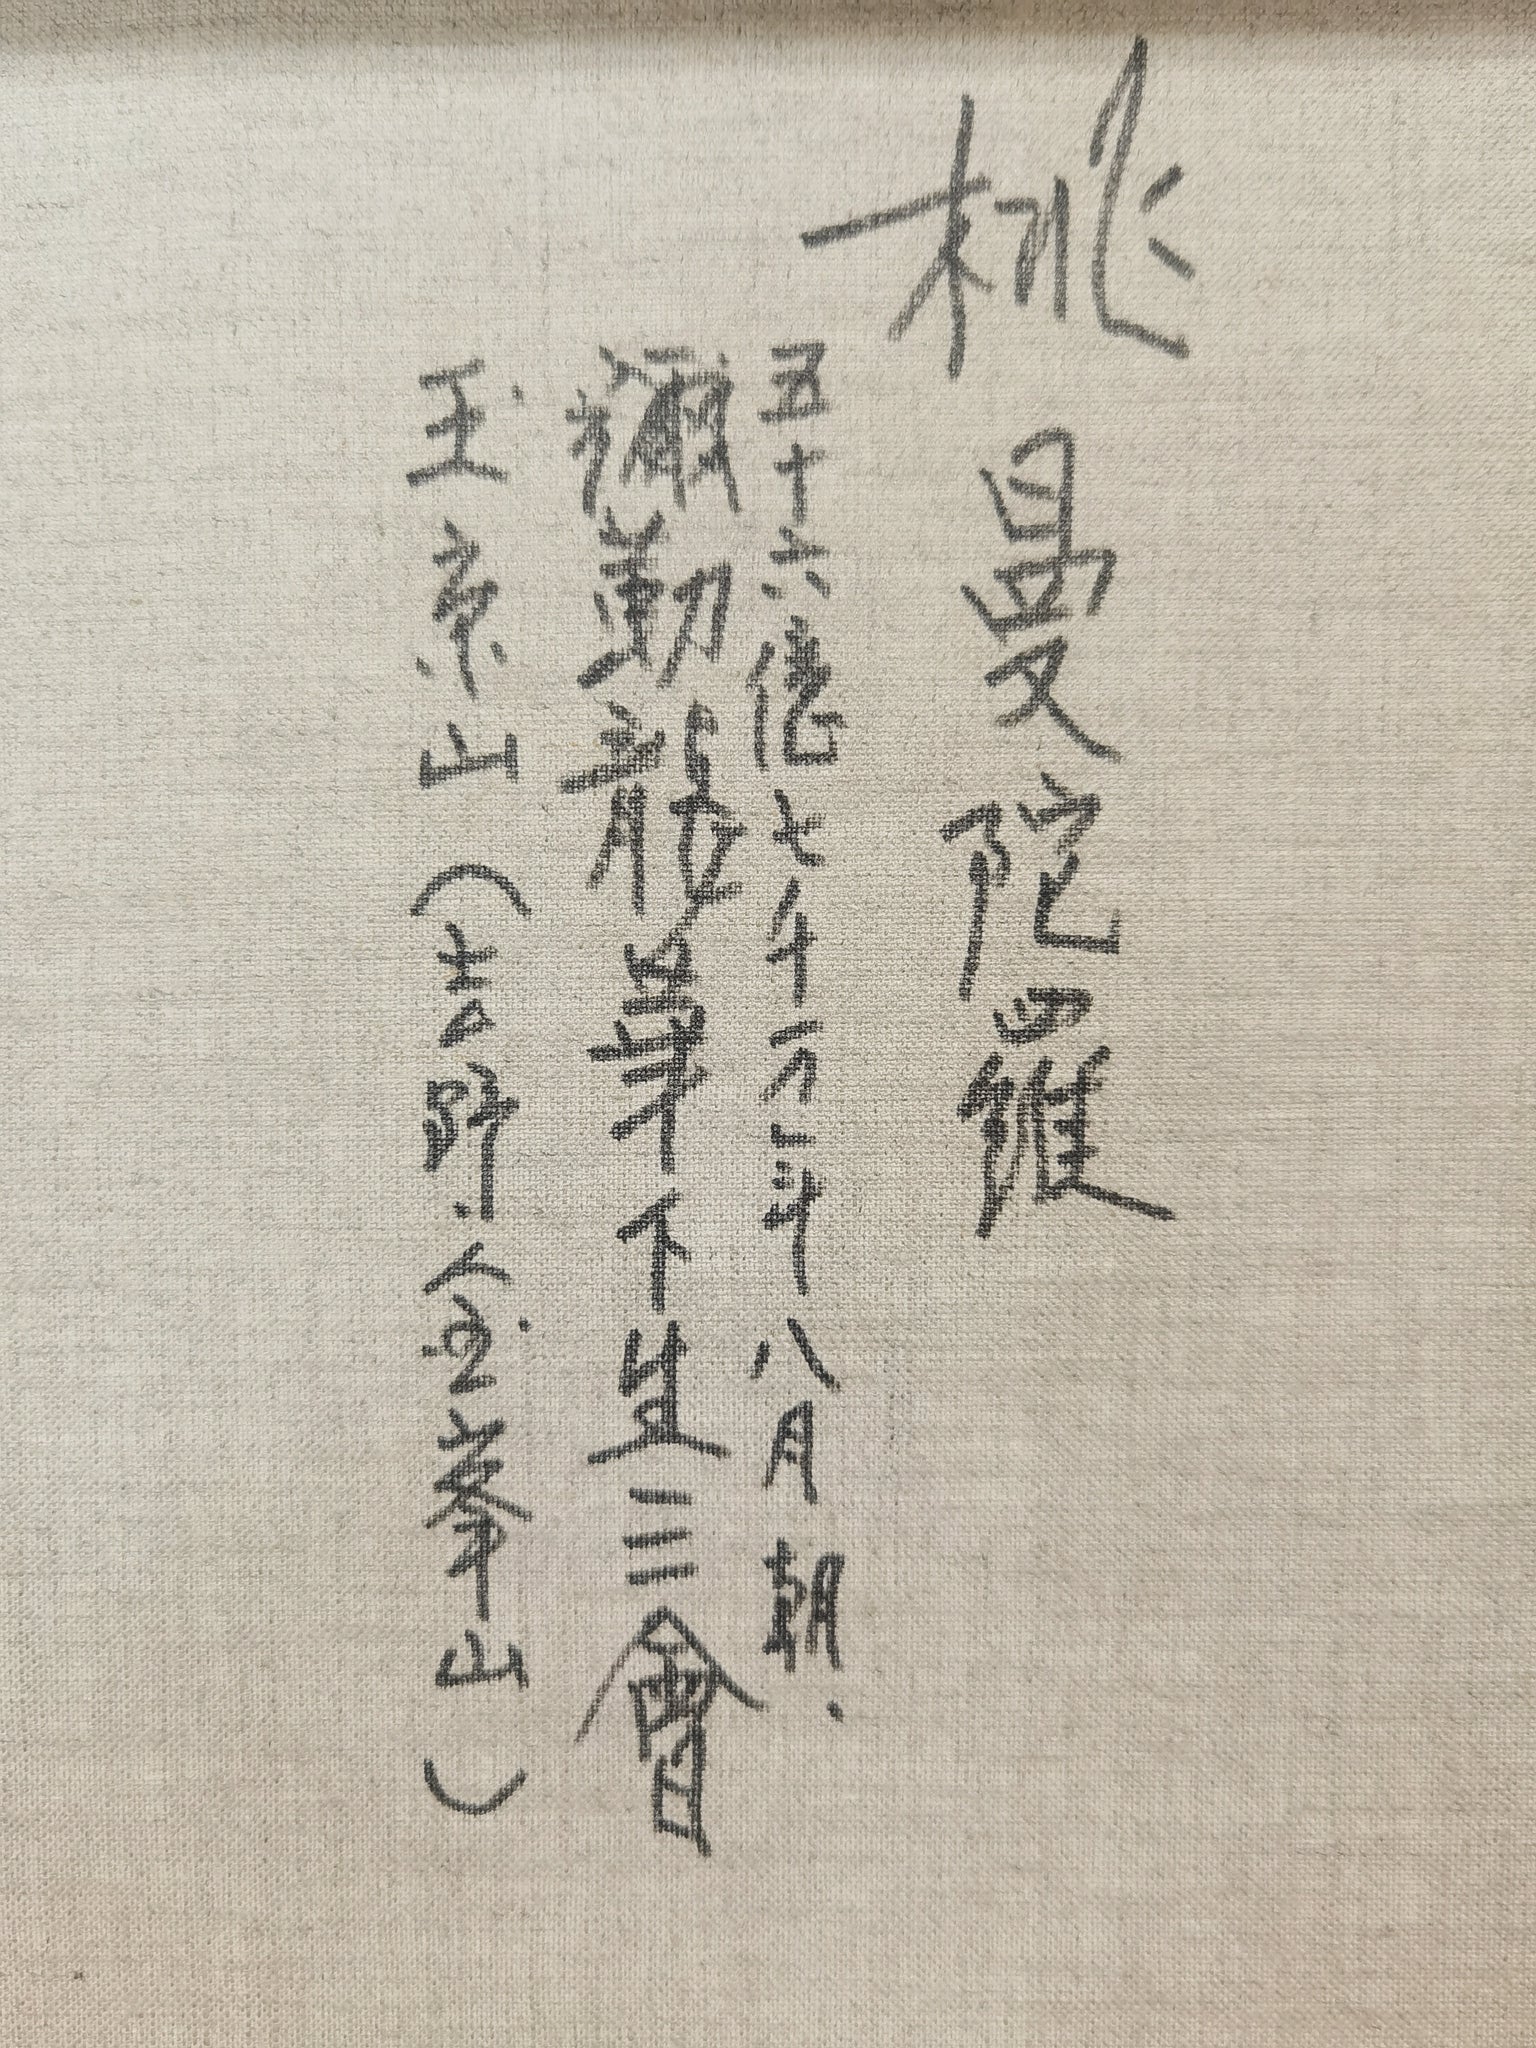 桃曼陀羅
五十六億七千万年八月朝.
彌勒龍華下生三會
玉京山（吉野・金峯山）